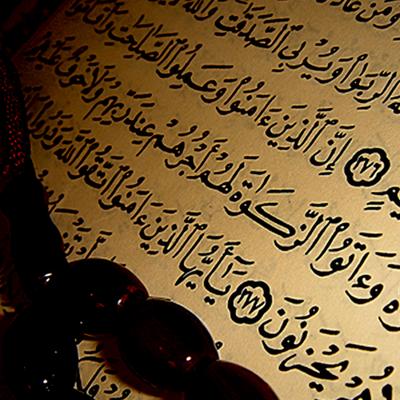 وَمَنْ عَادَ
ٱلرِّبَوٰا۟ وَيُرْبِى ٱلصَّدَقَٰتِ وَٱللَّهُ
إِنَّ ٱلَّذِينَ ءَامَنُوا۟ وَعَمِلُوا۟ ٱلصَّٰلِحَٰتِ وَأَقَامُوا۟ ٢٧٦
وَءَاتَوُا۟ ٱلزَّكَوٰةَ لَهُمْ أَجْرُهُمْ عِندَ رَبِّهِمْ وَلَا خَوْفٌ عَلَيْهِمْ
هُمْ يَحْزَنُونَ ٢٧٧ يَٰٓأَيُّهَا ٱلَّذِينَ ءَامَنُوا۟ ٱتَّقُوا۟ ٱللَّهَ وَذَرُوا۟